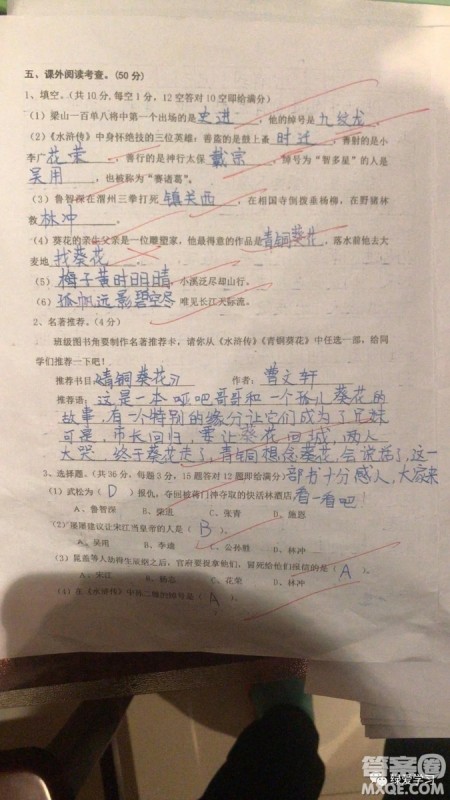 五、课外阅读考查。(50 分)
1、填空。(共 10 分,每空 1 分,12 空答对 10 空即给满分)
(1) 梁山一百单八将中第一个出场的是 史进 ,他的绰号是 九纹龙 。
(2)《水浒传》中身怀绝技的三位英雄:善盗的是鼓上蚤 时迁 ,善射的是小
李广 花荣 ,善行的是神行太保 戴宗 ,绰号为“智多星”的人是
吴用 ,也被称为“赛诸葛”。
(3) 鲁智深在渭州三拳打死 镇关西 ,在相国寺倒拨垂杨柳,在野猪林
救 林冲 。
(4) 葵花的亲生父亲是一位雕塑家,他最得意的作品是 青铜葵花 ,落水前他去大
麦地 找葵花 。
(5) 梅子黄时日日晴,小溪泛尽却山行。
(6) 孤帆远影碧空尽 唯见长江天际流。
2、名著推荐。(4 分)
班级图书角要制作名著推荐卡,请你从《水浒传》《青铜葵花》中任选一部,给同
学们推荐一下吧!
推荐书目:《青铜葵花》 作者: 曹文轩
推荐语: 这是一本哑吧哥哥和一个孤儿葵花的
故事,有一个特别的缘分让它们成为了兄妹
可是,市长回归,要让葵花回城,两人
大哭,终于葵花走了,青铜想念葵花,会说话了,这一
部书十分感人,大家来
看一看吧!
3、选择题。(共 36 分,每题 3 分,15 题答对 12 题即给满分)
(1) 武松为( D )报仇,夺回被蒋门神夺取的快活林酒店
A、鲁智深 B、柴进 C、张青 D、施恩
(2) 屡屡建议让宋江当皇帝的人是( B )。
A、吴用 B、李逵 C、公孙胜 D、林冲
(3) 晁盖等人劫得生辰纲之后,官府要捉拿他们,冒死给他们报信的是( A )。
A、宋江 B、杨志 C、花荣 D、林冲
(4) 在《水浒传》中孙二娘的绰号是( A )。
答案圈
MXQE.COM
绿爱学习